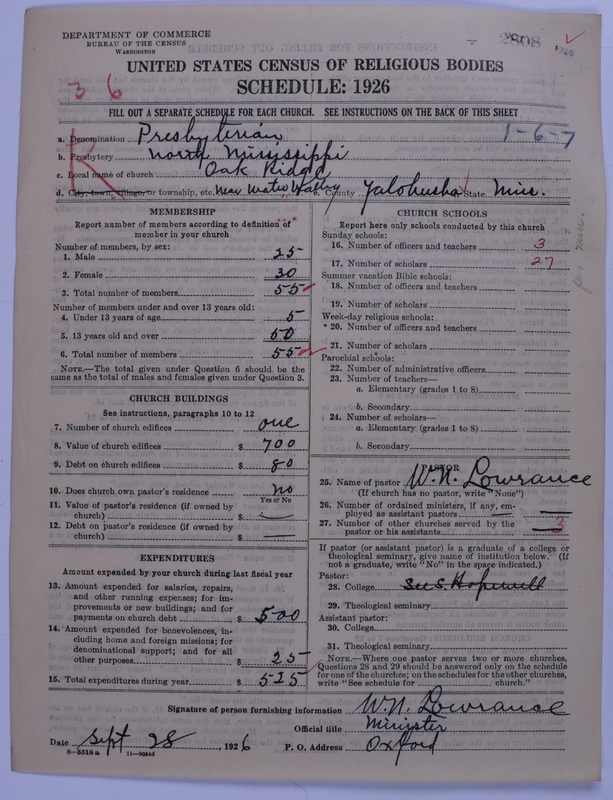 DEPARTMENT OF COMMERCE
BUREAU OF THE CENSUS
WASHINGTON
2808
1925
UNITED STATES CENSUS OF RELIGIOUS BODIES
SCHEDULE: 1926
3 6
FILL OUT A SEPARATE SCHEDULE FOR EACH CHURCH. SEE INSTRUCTIONS ON THE BACK OF THIS SHEET
a. Denomination Presbyterian 1-6-7
b. Presbytery North Mississippi
c. Local name of church Oak Ridge
d. City, town, village, or township, etc. Near Water Valley e. County Yalobusha State Miss.
R
MEMBERSHIP
Report number of members according to definition of member in your church
Number of members, by sex:
1. Male 25
2. Female 30
3. Total number of members 55
Number of members under and over 13 years old:
4. Under 13 years of age 5
5. 13 years old and over 50
6. Total number of members 55
NOTE.—The total given under Question 6 should be the same as the total of males and females given under Question 3.
CHURCH BUILDINGS
See instructions, paragraphs 10 to 12
7. Number of church edifices one
8. Value of church edifices $ 700
9. Debt on church edifices $ 80
10. Does church own pastor's residence No
Yes or No
11. Value of pastor's residence (if owned by church) $ —
12. Debt on pastor's residence (if owned by church) $ —
EXPENDITURES
Amount expended by your church during last fiscal year
13. Amount expended for salaries, repairs, and other running expenses; for improvements or new buildings; and for payments on church debt $ 500
14. Amount expended for benevolences, including home and foreign missions; for denominational support; and for all other purposes $ 25
15. Total expenditures during year $ 525
CHURCH SCHOOLS
Report here only schools conducted by this church
Sunday schools:
16. Number of officers and teachers 3
17. Number of scholars 27
Summer vacation Bible schools:
18. Number of officers and teachers
19. Number of scholars
Week-day religious schools:
20. Number of officers and teachers
21. Number of scholars
Parochial schools:
22. Number of administrative officers
23. Number of teachers—
a. Elementary (grades 1 to 8)
b. Secondary
24. Number of scholars—
a. Elementary (grades 1 to 8)
b. Secondary
PASTOR
25. Name of pastor W. N. Lowrance
(If church has no pastor, write "None")
26. Number of ordained ministers, if any, employed as assistant pastors —
27. Number of other churches served by the pastor or his assistants 3
If pastor (or assistant pastor) is a graduate of a college or theological seminary, give name of institution below. (If not a graduate, write "No" in the space indicated.)
Pastor:
28. College See S. Hopewell
29. Theological seminary
Assistant pastor:
30. College
31. Theological seminary
NOTE.—Where one pastor serves two or more churches, Questions 28 and 29 should be answered only on the schedule for one of the churches; on the schedules for the other churches, write "See schedule for church."
Signature of person furnishing information W. N. Lowrance
Official title Minister
Date Sept 28, 1926 P. O. Address Oxford
8-5518a